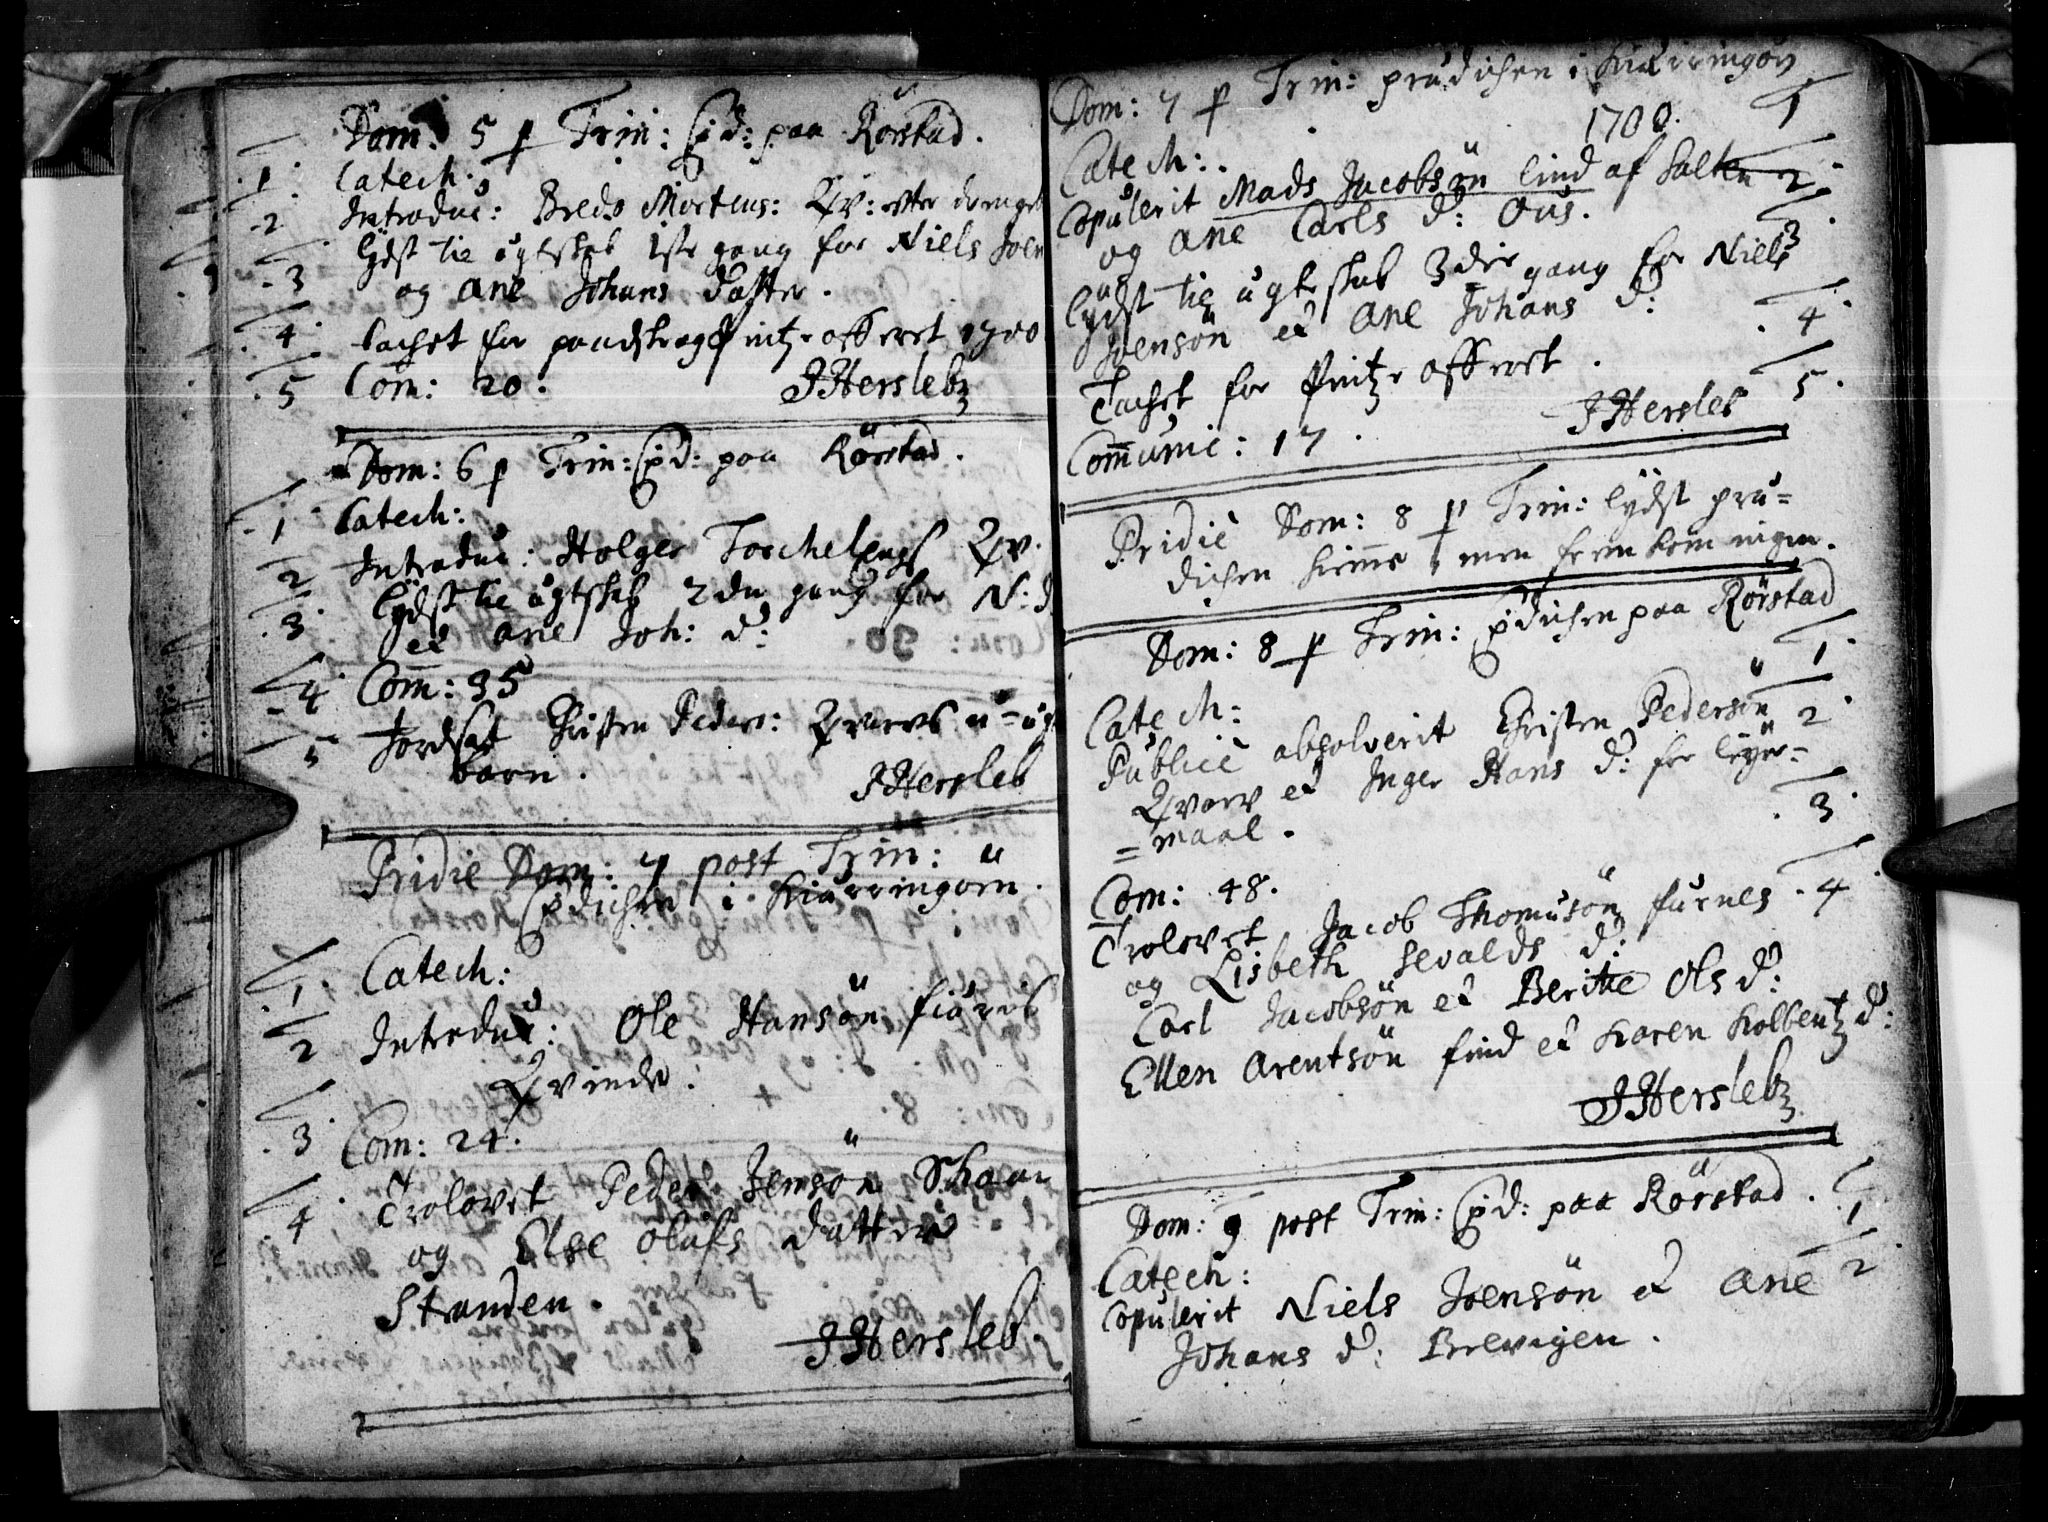 Dom: 5 p Trin: Pd: paa Rörstad.
1 Catech:
2 Introduc: Breds Mortens: Qv: efter
3 lydst til ägtskab 1ste gang for Niels Joen
og Ane Johans datter.
4 tachet for offeret 1700
5 Com: 20: JHersleb
Dom: 6 p Trin: Pd: paa Rörstad.
1 Catech:
2 Introduc: Holger Torchels Qv.
3 lydst til ägtskab 2den gang for N: J
et Ane Joh: d:
4 Com: 35
5 Jordsat Christen Peders: Qvarvs u-ägt
barn. JHersleb
Pridie Dom: 7 post Trin:
Pdichen i Kiärringöen.
1 Catech:
2 Introduc: Ole Hansön
Qvinde:
3 Com: 24.
4 Trolovet Peder Jensön Schaan
og Else Olufs datter
Stranden.
JHersleb.
Dom: 7 p Trin: prädichen i Kiärringöy
1700.
Catech: 1
Copulerit Mads Jacobsön lind af Salten 2
og Ane Carls d: Øus.
lydst til ägteskab 3die gang for Niels 3
Joensön et Ane Johans d:
Tachet for offeret. 4
Communic: 17. JHersleb 5
Pridie Dom: 8 p Trin: lydst prä=
dichen hiemme, men frem kom ingen.
Dom: 8 p Trin: Pdichen paa Rörstad
Catech: 1
Publicè absolverit Christen Pedersön 2
Qvarv et Inger Hans d: for leyer=
=maal.
Com: 48. 3
Trolovet Jacob Thomasön furnes 4
og Lisbeth Sevalds d:
Carl Jacobsön et Berite Ols d:
Ellen Arentsön find et Karen Kolbentz d:
JHersleb
Dom: 9 post Trin: Pd: paa Rörstad.
Catech: 1
Copulerit Niels Joensön et Ane 2
Johans d: Brevigen.